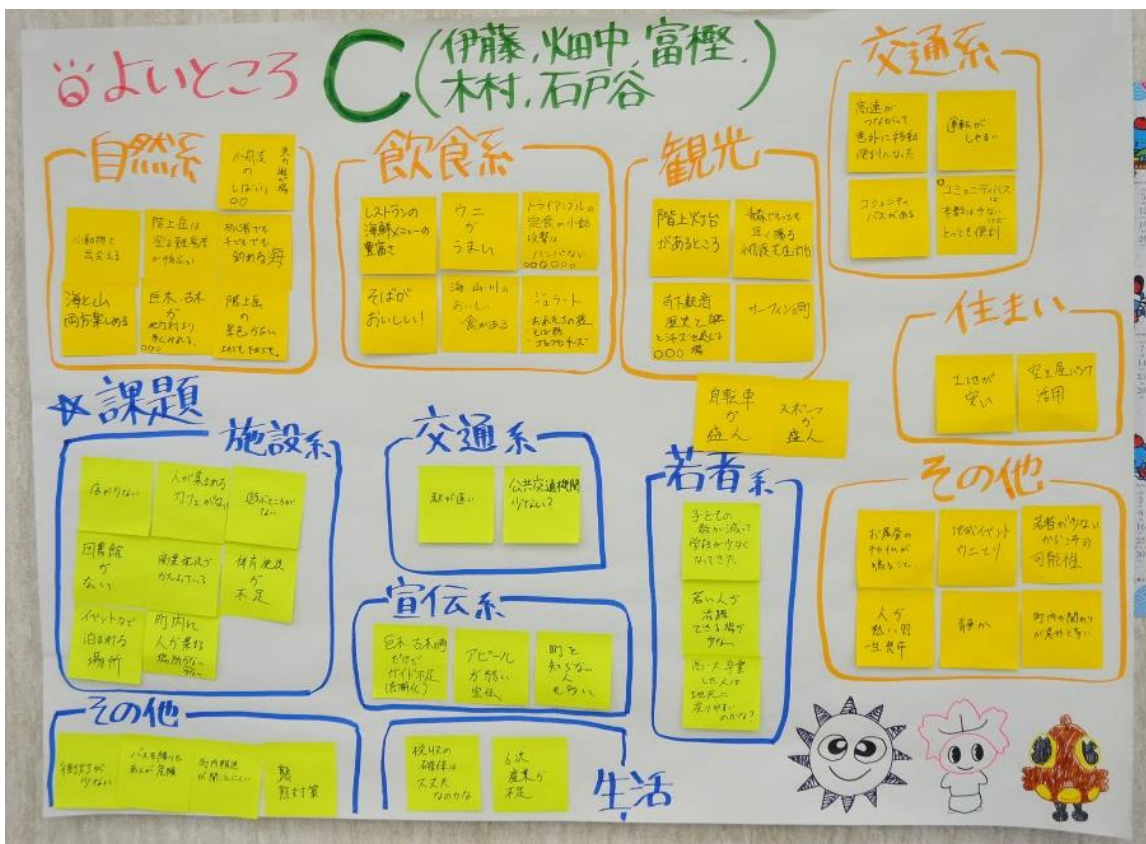 よいところ
C(伊藤,畑中,富樫,
木村,石戸谷)
自然系
小舟渡
の
しばふ
小動物と
出会える
階上岳は
登る難易度
が幅広い
初心者でも
子どもでも
釣れる海
海と山
両方楽しめる
巨木・古木
が
他町村より
多くみれる
○○○
階上岳
の
景色がよい
上からも下からも。
飲食系
レストランの
海鮮メニューの
豊富さ
ウニ
が
うまい
トライアングルの
定食の小鉢
攻撃は
ハンパない
○○○○○○
そばが
おいしい!
海・山・川の
おいしい
食がある
ジェラート
観光
階上灯台
があるところ
寺下観音
歴史と自然
○○○
場
サーフィンの町
自転車
が
盛ん
スポーツ
が
盛ん
交通系
高速が
つながって
意外に移動
便利になった
運転が
しやすい
コミュニティ
バスがある
コミュニティバス
は
本数は少ない
けど
とっても便利
住まい
土地が
安い
空き屋バンク
活用
その他
お昼の
チャイムが
鳴ること
地域イベント
ウニとり
若者が少ない
からこその
可能性
人が
熱い!!
一生懸命
静か
町内の関わり
が意外と多い
☆課題
施設系
店が少ない
人が集まれる
カフェがない
遊ぶところが
ない
図書館
が
ない
商業施設が
かたよっている
体育施設
が
不足
イベントなど
泊まれる
場所
町内に
人が集まる
場所がない
交通系
駅が遠い
公共交通機関
少ない?
宣伝系
巨木・古木の町
だけど
ガイド不足
アピール
が弱い
宣伝
町を
知らない
人
も多い
若者系
子どもの
数が減って
学校が少なく
なってきた
若い人が
活躍
できる場が
少ない
高・大卒業
した人は
地元に
戻りやすい
のかな?
その他
街灯が
少ない
バスを降りた
あとが危険
町内放送
が聞こえにくい
熊
熊対策
生活
税収の
確保は
大丈夫
なのかな
6次
産業が
不足